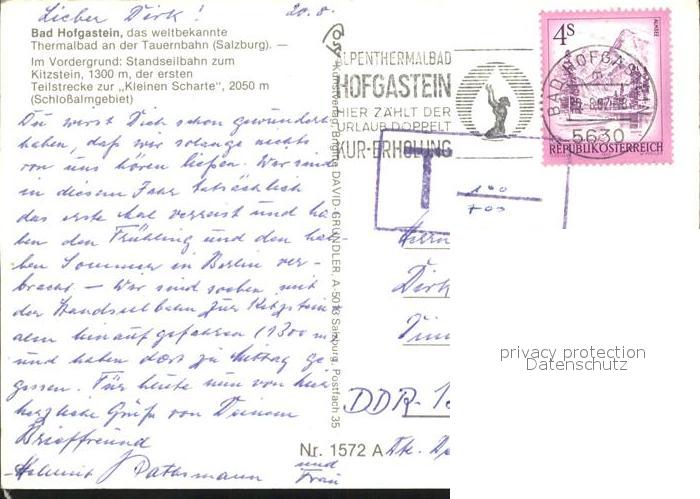 Lieber Dirk! 20.8.
Bad Hofgastein, das weltbekannte
Thermalbad an der Tauernbahn (Salzburg). —
Im Vordergrund: Standseilbahn zum
Kitzstein, 1300 m, der ersten
Teilstrecke zur „Kleinen Scharte", 2050 m
(Schloßalmgebiet)
Du wirst Dich schon gewundert
haben, daß wir solange nichts
von uns hören ließen. Wir sind
in diesem Jahr tatsächlich
das erste Mal verreist und ha-
ben den Frühling und den hal-
ben Sommer in Berlin ver-
bracht — Wir sind soeben mit
der Standseilbahn zur Kitzstein
alm hinaufgefahren (1300 m
und haben dort zu Mittag ge-
gessen. Für heute nun von hier
herzliche Grüße von Deinem
Brieffreund
Helmut
und
Frau
Kunstverlag Bruna DAVID-GRÜNDLER, A-5013 Salzburg, Postfach 35
ALPENTHERMALBAD
HOFGASTEIN
HIER ZÄHLT DER
URLAUB DOPPELT
KUR-ERHOLUNG
4S
ALMSEE
BAD HOFGAS
5630
REPUBLIK ÖSTERREICH
T
Herrn
Dirk
DDR-
Nr. 1572 A
privacy protection
Datenschutz